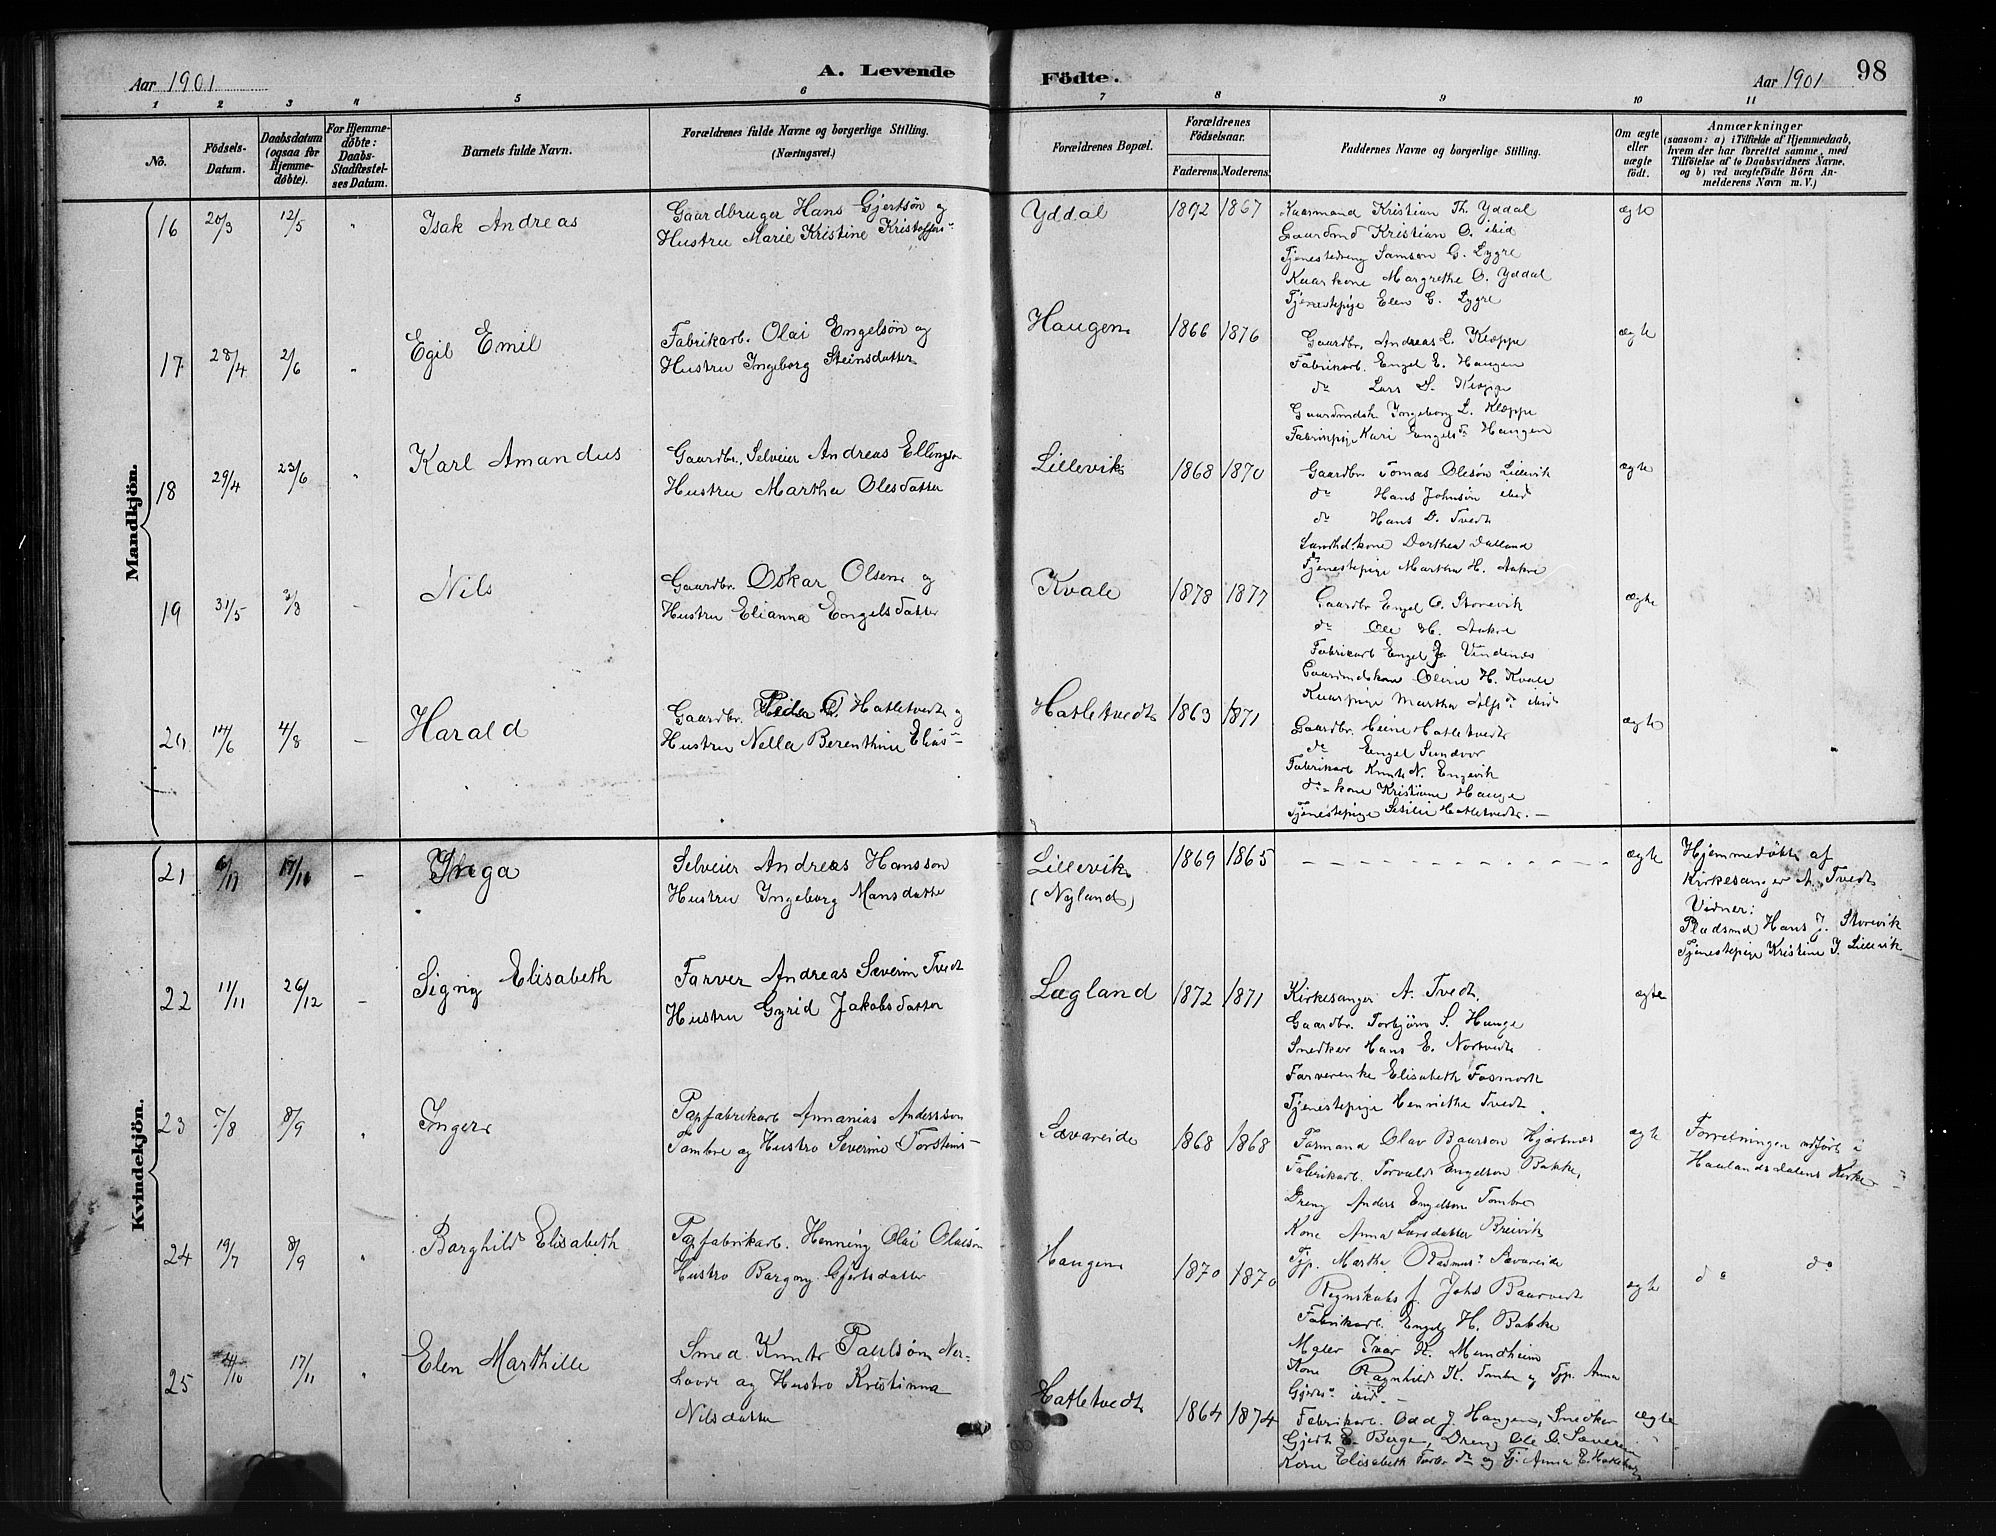 Aar 1901
A. Levende
Födte.
Aar 1901
98
1 2 3 4 5 6 7 8 9 10 11
No.
Födsels-Datum.
Daabsdatum (ogsaa for Hjemme-døbte).
For Hjemme-døbte: Daabs-Stadfæstel-ses Datum.
Barnets fulde Navn.
Forældrenes fulde Navne og borgerlige Stilling. (Næringsvei.)
Forældrenes Bopæl.
Forældrenes Födselsaar.
Faderens. Moderens.
Faddernes Navne og borgerlige Stilling.
Om ægte eller uægte födt.
Anmærkninger
(saasom: a) i Tilfælde af Hjemmedaab,
hvem der har forrettet samme, med
Tilföielse af to Daabsvidners Navne,
og b) ved uægtefödte Börn An-
melderens Navn m. V.)
Mandkjön.
16 20/3 12/5 " Isak Andreas
Gaardbruger Hans Gjertsön og
Hustru Marie Kristine Kristoffers"
Yddal 18 2 1867
Kaarmand Kristian Th. Yddal
Gaardmd Kristian O. ibid
Tjenestedreng Samson G. Lygre
Kaarkone Margrethe O. Yddal
Tjenestepige Elen G. Lygre
ægte
17 28/4 2/6 " Egil Emil
Fabrikarb. Olai Engelsön og
Hustru Ingeborg Steinsdatter
Haugen 1866 1876
Gaardbr. Andreas L. Kleppe
Fabrikarb. Engel E. Haugen
do Lars S. Kleppe
Gaardmdsk. Ingeborg L. Kleppe
Fabrikpige Kari Engelsdr Haugen
ægte
18 29/4 23/6 " Karl Amandus
Gaardbr., Selveier Andreas Ellingsön
Hustru Martha Olesdatter
Lillevik 1868 1870
Gaardbr Tomas Olesön Lillevik
do Hans Johnsön ibid
do Hans D. Tvedt
kone Dorthea Dalland
Tjenestepige Martha H. Aakre
ægte
19 31/5 /8 - Nils
Gaardbr. Oskar Olsen og
Hustru Elianna Engelsdatter
Kvale 1878 1877
Gaardbr Engel O. Storevik
do Ole H. Aakre
Fabrikarb Engel J. Vindenes
Gaardmdskone Oline H. Kvale
Kaarpige Martha ibid
ægte
20 14/6 4/8 - Harald
Gaardbr. Peder O. Hatletvedt og
Hustru Nella Berenthine Elias"
Hatletvedt 1863 1871
Gaardbr. Heine Hatletvedt
do Engel Sundvor
Fabrikarb Knut N. Engevik
do kone Kristine Hauge
Tjenestepige Sesilie Hatletvedt. -
ægte
Kvindekjön.
21 /11 17/11 - Inga
Selveier Andreas Hansson
Hustru Ingeborg Mansdatter
Lillevik
(Nyland)
1869 1865
ægte
Hjemmedøbt af
Kirkesanger A. Tvedt
Vidner:
Pladsmd Hans J. Storevik
Tjenestepige Kristine J. Lillevik
22 11/11 26/12 - Signy Elisabeth
Farver Andreas Severin Tvedt
Hustru Gyrid Jakobsdatter
Lægland 1872 1871
Kirkesanger A. Tvedt.
Gaardbr. Torbjörn S. Hauge
Snedker Hans E. Nortvedt
Farverenke Elisabeth Fosmark
Tjenestepige Henriette Tvedt.
ægte
23 7/8 8/9 " Inger
Papfabrikarb Annanias Andersson
Tombre og Hustro Severine Torsteins-
Sævareide 1868 1868
Formand Olav Baarson Hjertnes
Fabrikarb. Torvald Engelson Bakke,
Dreng Anders Engelson Tombre
Kone Anna Larsdatter Breivik
Tjp. Martha Rasmus" Sævareide
ægte
Forretningen udført i
Haalandsdalens Kirke -
24 19/7 8/9 " Borghild Elisabeth
Papfabrikarb. Henning Olai Olaison
Hustro Bargny Gjertsdatter
Haugen 1870 1870
Regnskabsf. Johs Baarvedt
Fabrikarb. Engel H. Bakke
Maler Ivar K. Mundheim
Kone Ragnhild K. Tombre og Tjp. Anna
Gjerts" ibid. -
ægte
do do
25 /10 17/11 " Elen Marthille
Smed Knut Paulsön Ner-
hovde og Hustro Kristinna
Nilsdatter
Hatletvedt 1864 1874
Fabrikarb. Odd J. Haugen, Snedker
Gjert E. Berge, Dreng Ole O. Sæverei
Kone Elisabeth do og Tj. Anna E. Hatletvedt
ægte